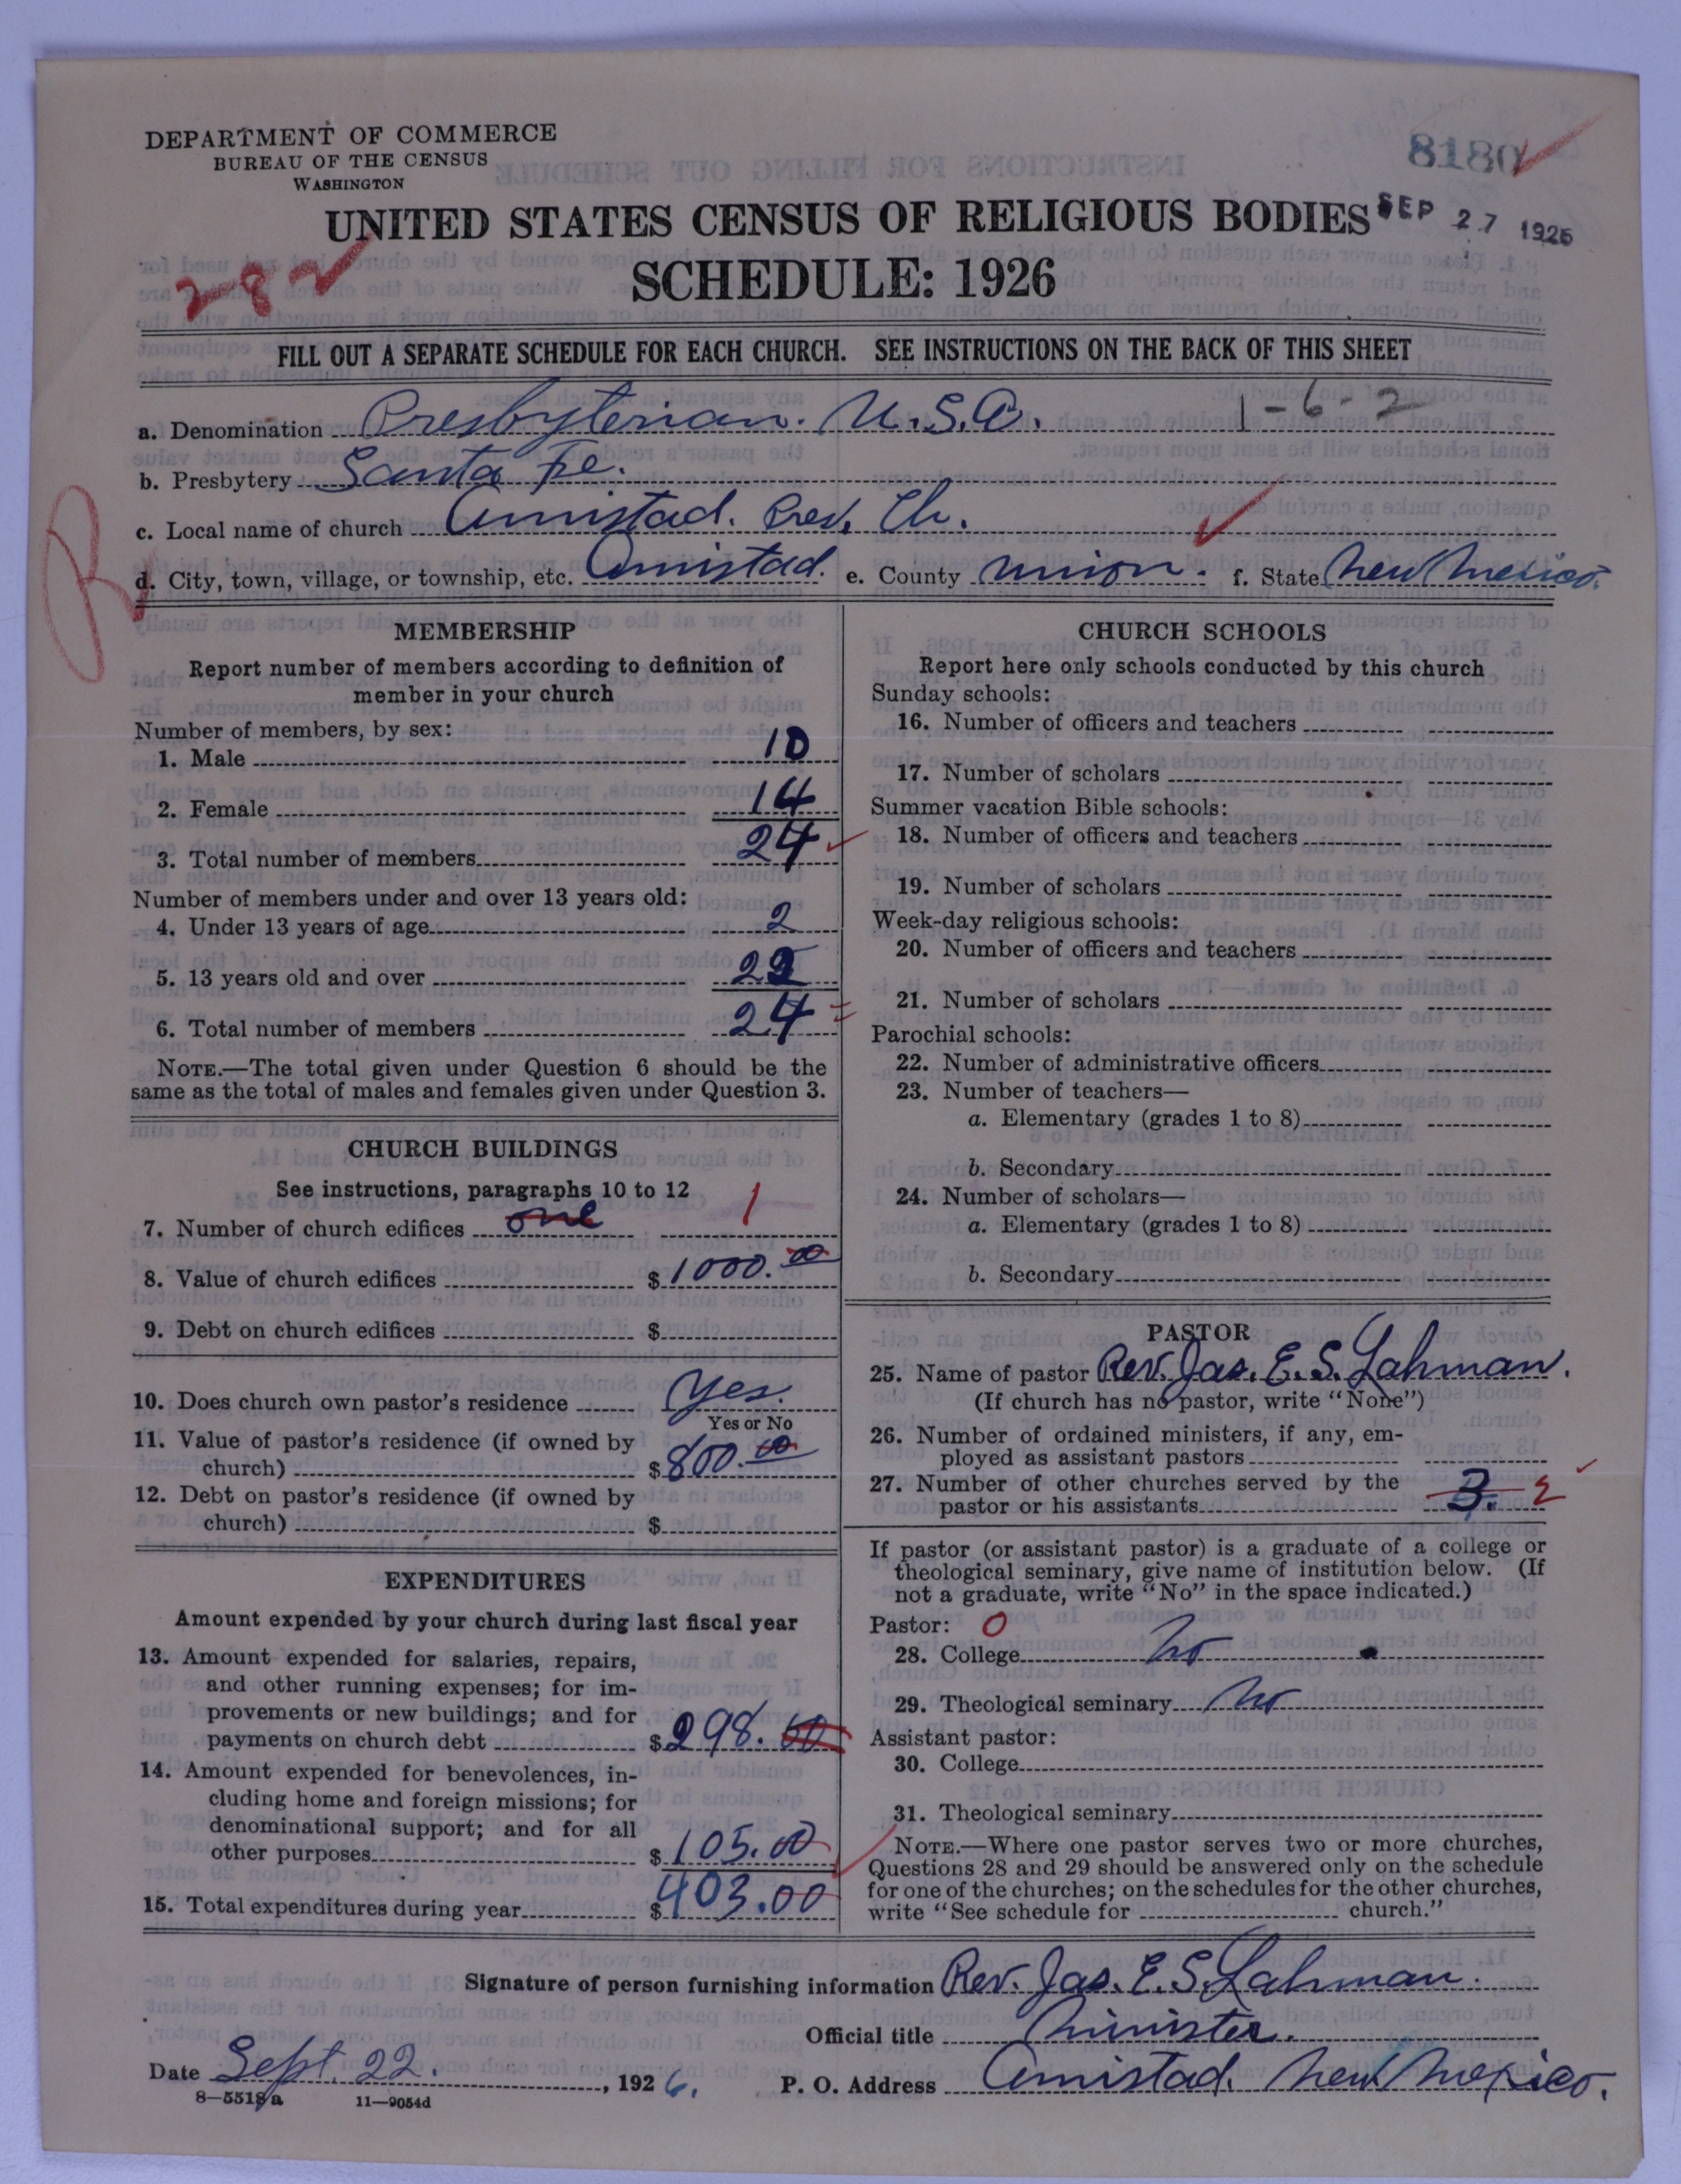 DEPARTMENT OF COMMERCE
BUREAU OF THE CENSUS
WASHINGTON
8180
UNITED STATES CENSUS OF RELIGIOUS BODIES
SEP 27 1926
SCHEDULE: 1926
282
FILL OUT A SEPARATE SCHEDULE FOR EACH CHURCH. SEE INSTRUCTIONS ON THE BACK OF THIS SHEET
a. Denomination Presbyterian. U.S.A. 1-6-2
b. Presbytery Santa Fe.
c. Local name of church Amistad. Pres. Ch.
R
d. City, town, village, or township, etc. Amistad. e. County Union. f. State New Mexico.
MEMBERSHIP
Report number of members according to definition of
member in your church
Number of members, by sex:
1. Male 10
2. Female 14
3. Total number of members 24
Number of members under and over 13 years old:
4. Under 13 years of age 2
5. 13 years old and over 22
6. Total number of members 24
NOTE.—The total given under Question 6 should be the
same as the total of males and females given under Question 3.
CHURCH BUILDINGS
See instructions, paragraphs 10 to 12
7. Number of church edifices one 1
8. Value of church edifices $1000.00
9. Debt on church edifices $
10. Does church own pastor's residence Yes.
Yes or No
11. Value of pastor's residence (if owned by
church) $800.00
12. Debt on pastor's residence (if owned by
church) $
EXPENDITURES
Amount expended by your church during last fiscal year
13. Amount expended for salaries, repairs,
and other running expenses; for im-
provements or new buildings; and for
payments on church debt $298.00
14. Amount expended for benevolences, in-
cluding home and foreign missions; for
denominational support; and for all
other purposes $105.00
15. Total expenditures during year $403.00
CHURCH SCHOOLS
Report here only schools conducted by this church
Sunday schools:
16. Number of officers and teachers
17. Number of scholars
Summer vacation Bible schools:
18. Number of officers and teachers
19. Number of scholars
Week-day religious schools:
20. Number of officers and teachers
21. Number of scholars
Parochial schools:
22. Number of administrative officers
23. Number of teachers—
a. Elementary (grades 1 to 8)
b. Secondary
24. Number of scholars—
a. Elementary (grades 1 to 8)
b. Secondary
PASTOR
25. Name of pastor Rev. Jas. E. S. Lahman.
(If church has no pastor, write "None")
26. Number of ordained ministers, if any, em-
ployed as assistant pastors
27. Number of other churches served by the
pastor or his assistants 3. 2
If pastor (or assistant pastor) is a graduate of a college or
theological seminary, give name of institution below. (If
not a graduate, write "No" in the space indicated.)
Pastor: 0
28. College No
29. Theological seminary No
Assistant pastor:
30. College
31. Theological seminary
NOTE.—Where one pastor serves two or more churches,
Questions 28 and 29 should be answered only on the schedule
for one of the churches; on the schedules for the other churches,
write "See schedule for church."
Signature of person furnishing information Rev. Jas. E. S. Lahman.
Official title Minister.
Date Sept. 22. , 1926. P. O. Address Amistad. New Mexico.
8—5518a 11—9054d